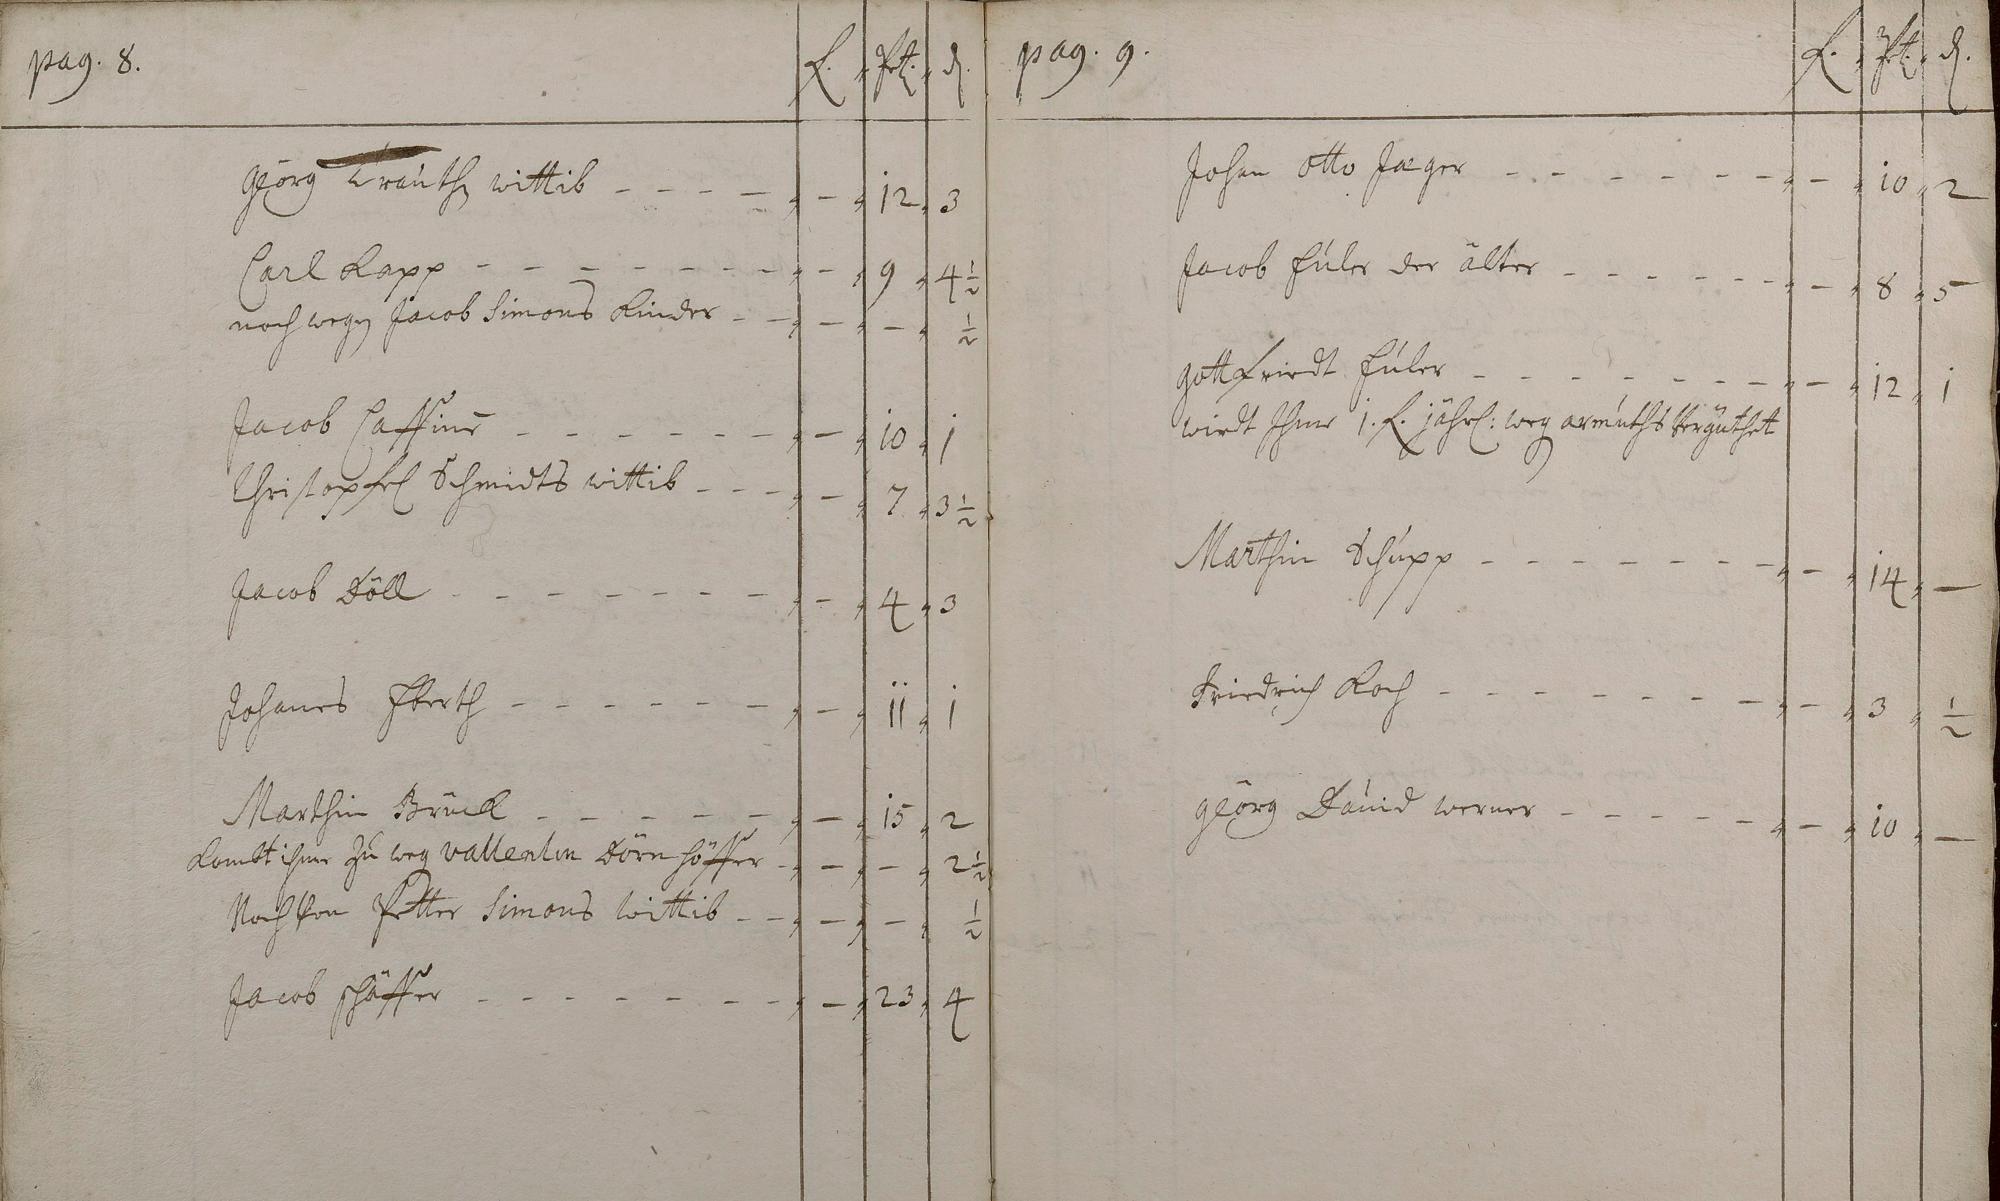 pag. 8. f. bz. d.
Georg Krauthn wittib - - - - " - " 12 " 3
Carl Kapp - - - - - - - " - " 9 " 4 1/2
noch wegn Jacob Simons Kinder - - " - " - " 1/2
Jacob Cassine - - - - - - " - " 10 " 1
Christopfel Schmidts wittib - - - " - " 7 " 3 1/2
Jacob Döll - - - - - - - - " - " 4 " 3
Johanes Eberth - - - - - - " - " 11 " 1
Marthin Brück - - - - - - " - " 15 " 2
kombt ihme zu weg vallentin Dörnhöffer - " - " - " 2 1/2
Noch von Petter Simons wittib - - " - " - " 1/2
Jacob schäffer - - - - - - - " - " 23 " 4
pag. 9. f. d.
Johan otto Jaeger - - - - - - " - " 10 " 2
Jacob Euler der älter - - - - - " - " 8 " 5
gottfriedt Euler - - - - - - - " - " 12 " 1
wirdt Ihme 1. f. jährl: weg armuths vergüthet
Marthin Schupp - - - - - - - " - " 14 " -
Friedrich Koch - - - - - - - " - " 3 " 1/2
georg David werner - - - - - " - " 10 " -